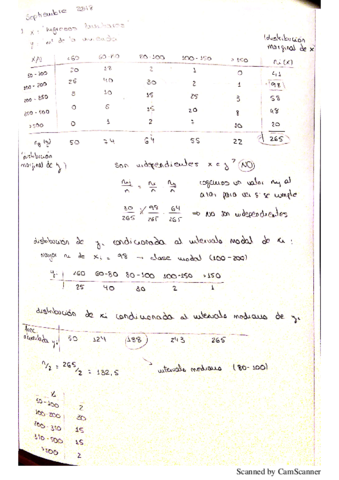 Septiembre 2017
(distribución
marginal de x
x/y <60 60-80 80-100 100-150 >150 ni (x)
50-100 20 18 2 1 0 41
100-200 25 40 30 2 1 98
5 10 15 25 3 58
0 5 15 20 8 48
>500 0 1 2 10 20
50 74 64 55 22 265
(distribución
marginal de y)
Son independientes x e y? NO
cogemos un valor nij al
azar para ver si se cumple
30/265 98/265 · 64/265 ⇒ no son independientes
distribución de yj condicionada al intervalo modal de xi:
mayor ni de xi = 98 → clase modal (100-200)
y <60 60-80 80-100 100-150 >150
25 40 30 2 1
distribución de xi condicionada al intervalo mediano de yj
50 124 188 243 265
n/2 = 265/2 = 132,5 intervalo mediano (80-100)
xi
50-100 2
100-200 30
15
15
>500 2
Scanned by CamScanner